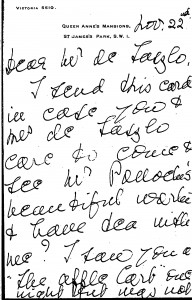 VICTORIA 5510.
QUEEN ANNE'S MANSIONS,
ST JAMES'S PARK, S.W.1.
Nov. 22nd
Dear Mr de Laszlo,
I send this card
in case you &
Mrs de Laszlo
care to come &
see Mr Pollocks
beautiful works
& have tea with
me? I saw you @
"The Apple Cart" one
night but may not